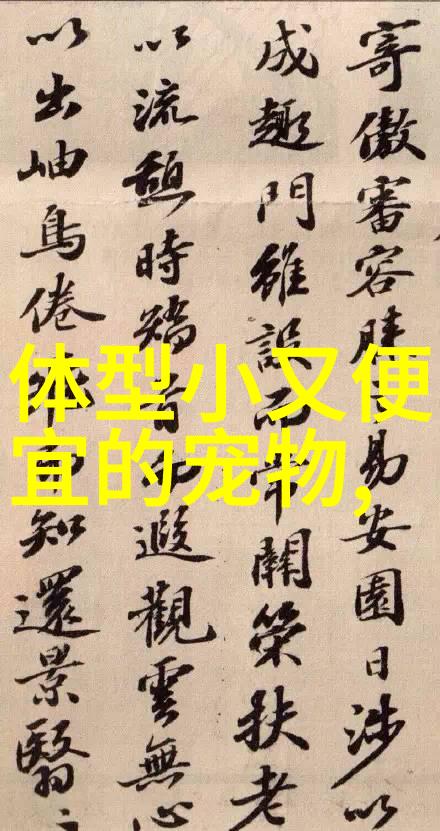 體型小又便
宜的宠物,
寄傲審容膝易安園日涉以
成趣門雖設而常關策扶老
以流憩時矯首而遐觀雲無心
以出岫鳥倦而知還景翳